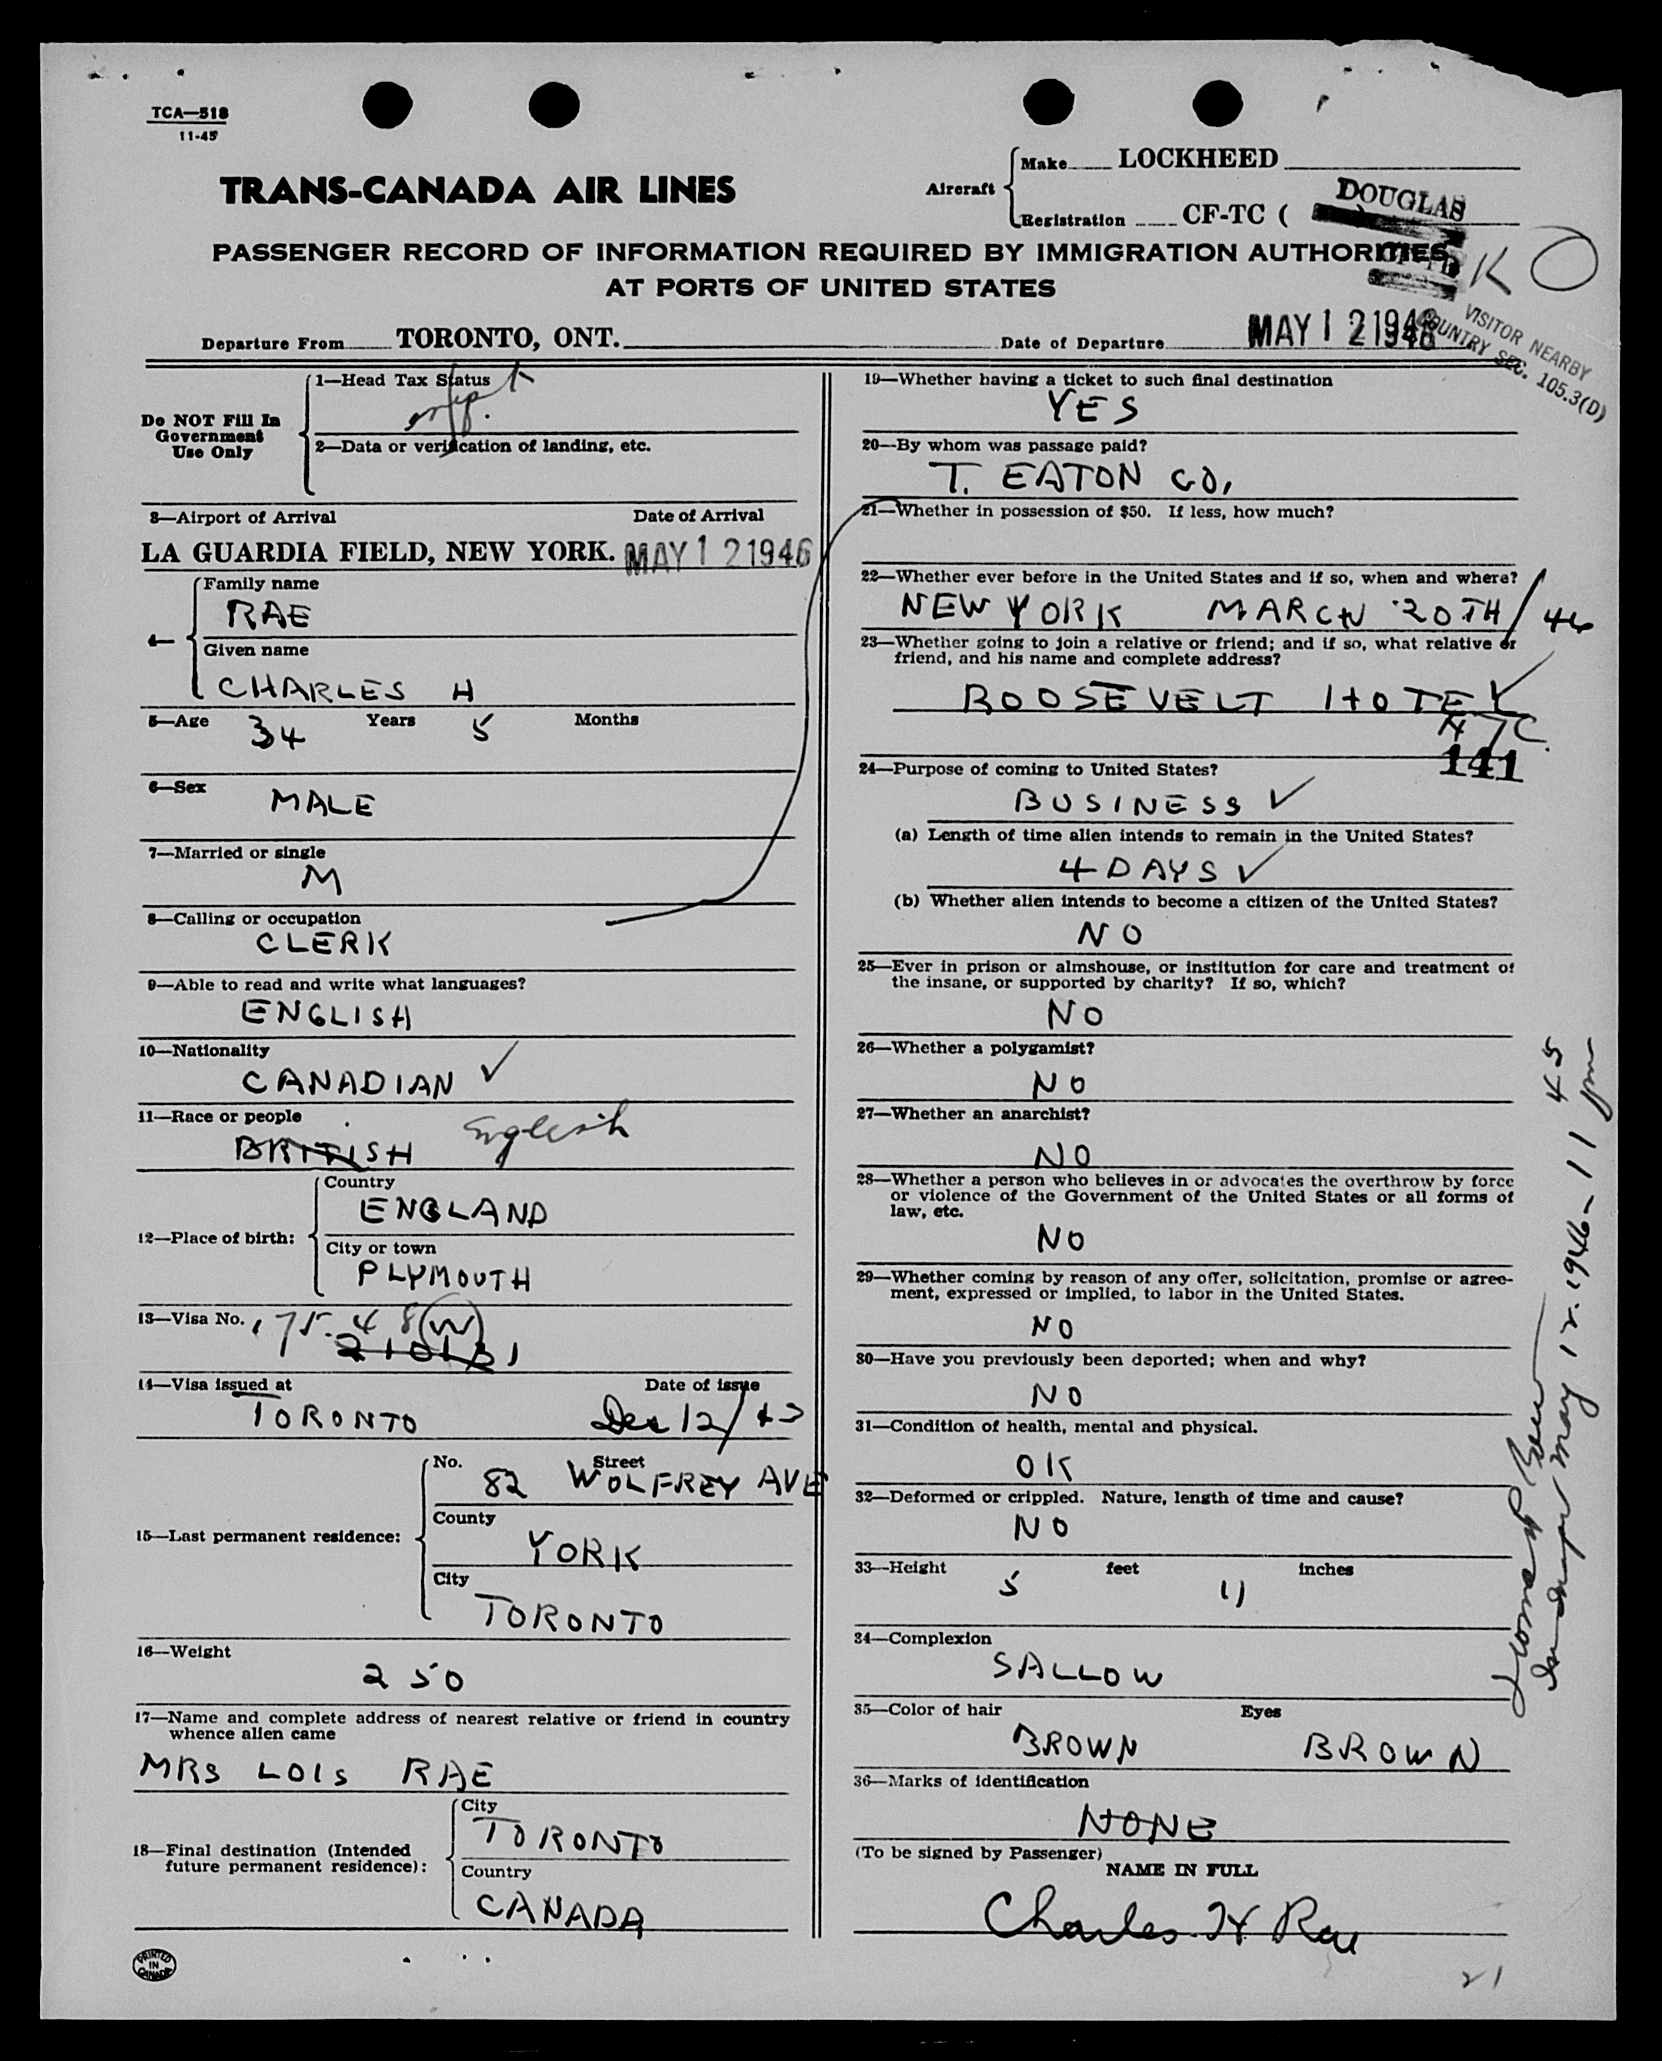 TCA—518
11-45
TRANS-CANADA AIR LINES
Aircraft
Make LOCKHEED
Registration CF-TC (
DOUGLAS
K O
PASSENGER RECORD OF INFORMATION REQUIRED BY IMMIGRATION AUTHORITIES
AT PORTS OF UNITED STATES
VISITOR NEARBY
COUNTRY SEC. 105.3(D)
Departure From TORONTO, ONT. Date of Departure MAY 12 1946
Do NOT Fill In
Government
Use Only
1—Head Tax Status
2—Data or verification of landing, etc.
3—Airport of Arrival Date of Arrival
LA GUARDIA FIELD, NEW YORK. MAY 12 1946
4—
Family name
RAE
Given name
CHARLES H
5—Age 34 Years 5 Months
6—Sex
MALE
7—Married or single
M
8—Calling or occupation
CLERK
9—Able to read and write what languages?
ENGLISH
10—Nationality
CANADIAN ✓
11—Race or people
BRITISH English
12—Place of birth:
Country
ENGLAND
City or town
PLYMOUTH
13—Visa No.
14—Visa issued at Date of issue
TORONTO Dec 12/43
15—Last permanent residence:
No. Street
82 WOLFREY AVE
County
YORK
City
TORONTO
16—Weight
250
17—Name and complete address of nearest relative or friend in country
whence alien came
MRS LOIS RAE
18—Final destination (Intended
future permanent residence):
City
TORONTO
Country
CANADA
PRINTED
IN
CANADA
19—Whether having a ticket to such final destination
YES
20—By whom was passage paid?
T. EATON CO,
21—Whether in possession of $50. If less, how much?
22—Whether ever before in the United States and if so, when and where?
NEW YORK MARCH 20TH/46
23—Whether going to join a relative or friend; and if so, what relative or
friend, and his name and complete address?
ROOSEVELT HOTEL
NYC.
141
24—Purpose of coming to United States?
BUSINESS ✓
(a) Length of time alien intends to remain in the United States?
4 DAYS ✓
(b) Whether alien intends to become a citizen of the United States?
NO
25—Ever in prison or almshouse, or institution for care and treatment of
the insane, or supported by charity? If so, which?
NO
26—Whether a polygamist?
NO
27—Whether an anarchist?
NO
28—Whether a person who believes in or advocates the overthrow by force
or violence of the Government of the United States or all forms of
law, etc.
NO
29—Whether coming by reason of any offer, solicitation, promise or agree-
ment, expressed or implied, to labor in the United States.
NO
30—Have you previously been deported; when and why?
NO
31—Condition of health, mental and physical.
OK
32—Deformed or crippled. Nature, length of time and cause?
NO
33—Height 5 feet 11 inches
34—Complexion
SALLOW
35—Color of hair Eyes
BROWN BROWN
36—Marks of identification
NONE
(To be signed by Passenger)
NAME IN FULL
Charles H Rae
21
May 12-1946-11 45 pm